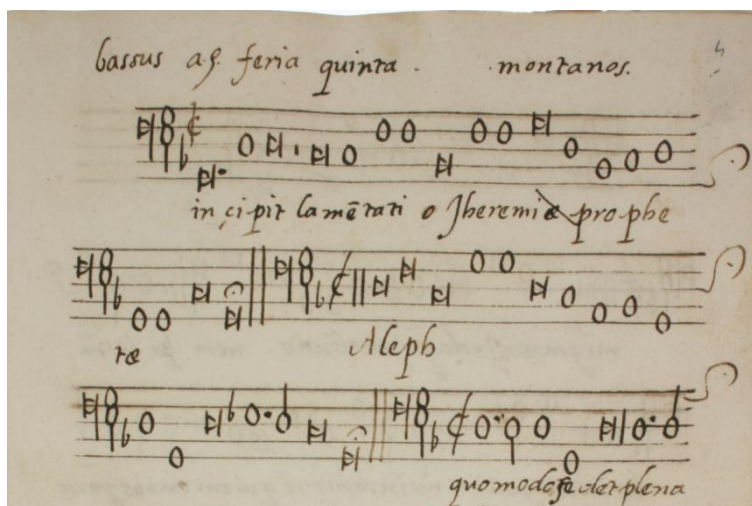 bassus a 5. feria quinta . montanos. 4
in çipit lamētati o Jheremiæ prophe
tæ Aleph
quomodo sedet plena